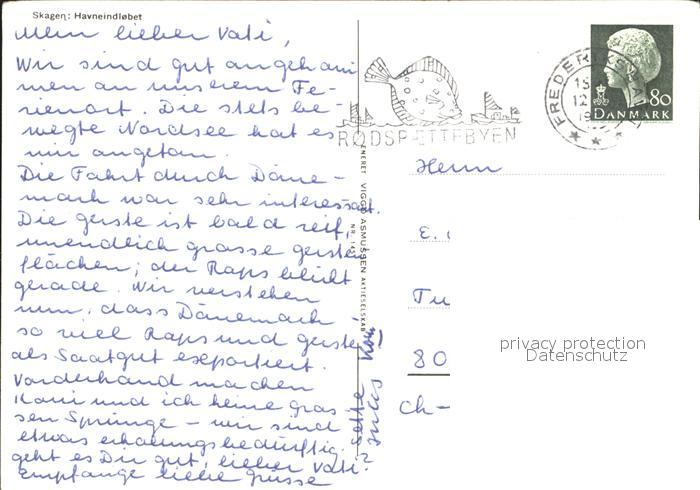 Skagen: Havneindløbet
Mein lieber Vati,
Wir sind gut angekom
men an unserem Fe-
rienort. Die stets be-
wegte Nordsee hat es
mir angetan.
Die Fahrt durch Däne-
mark war sehr interessant.
Die gerste ist bald reif,
unendlich grosse gerste
flächen; der Raps blüht
gerade. Wir verstehen
nun, dass Dänemark
so viel Raps und gerste
als Saatgut exportiert.
Vorderhand machen
und ich keine gros
sen Sprünge – wir sind
etwas erholungsbedürftig.
geht es Dir gut, lieber Vati?
Empfange liebe grüsse
NERET VIGGO ASMUSSEN AKTIESELSKAB
RØDSPÆTTEBYEN
FREDERIKSHAVN
80
DANMARK
Herrn
E.
Tu
80
CH-
privacy protection
Datenschutz